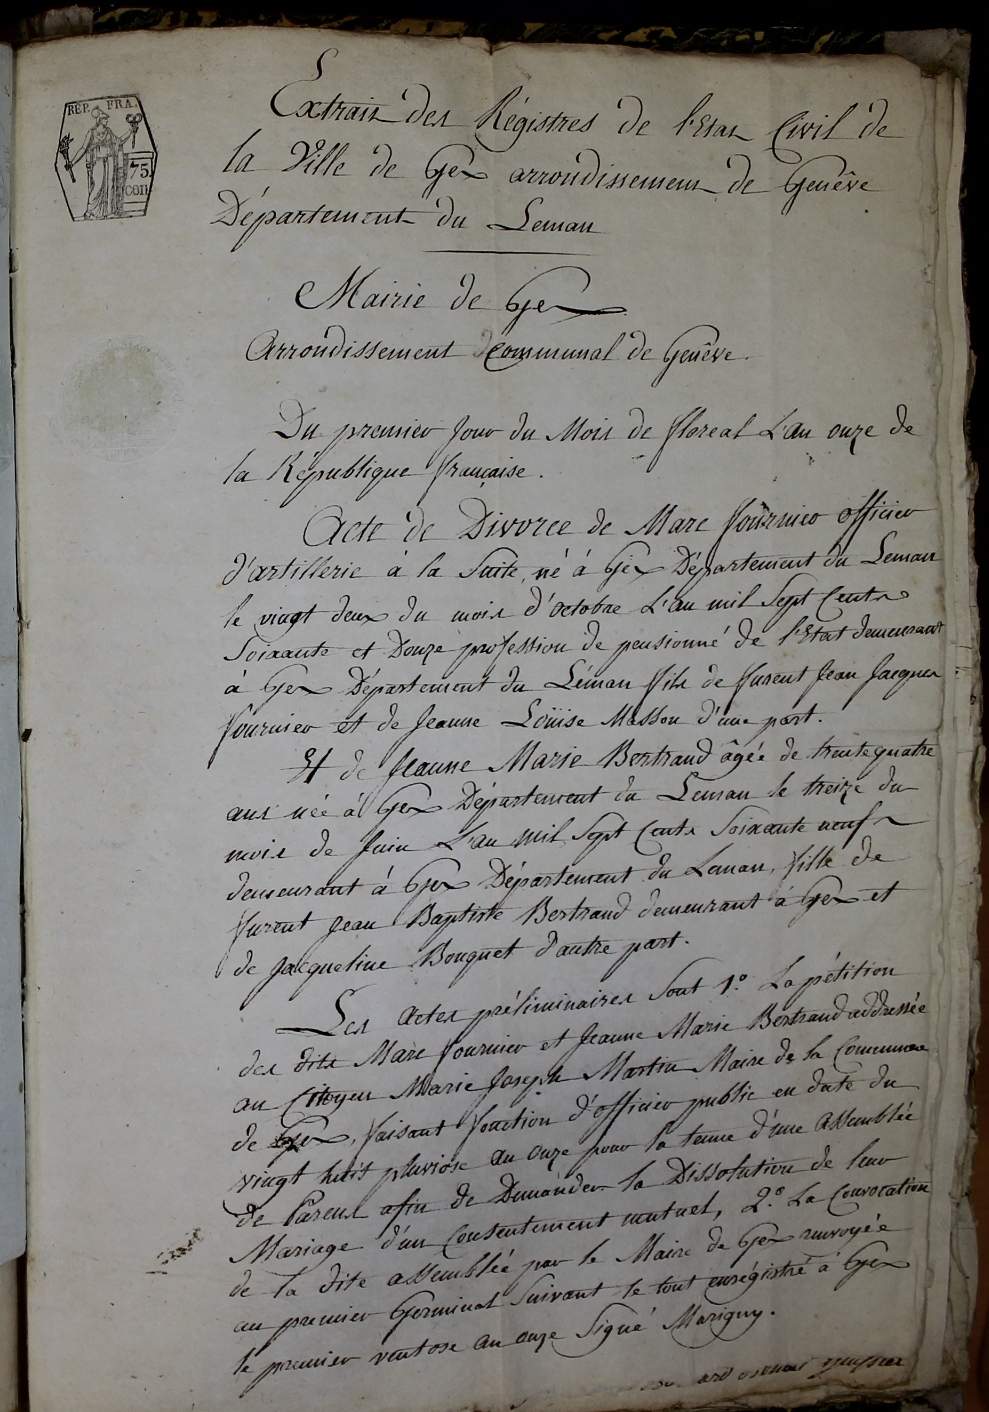 REP. FRA.
75
CON
Extrait des Régistres de l'Etat Civil de
la Ville de Gex arrondissement de Genêve
Département du Leman
Mairie de Gex
Arrondissement Communal de Genêve.
Du premier Jour du Mois de floreal L'an onze de
la République française.
Acte de Divorce de Marc fournier officier
d'artillerie à la Suite, né à Gex Département du Leman
le vingt deux du mois d'octobre L'an mil Sept Cents
Soixante et Douze profession de pensionné de l'Etat demeurant
à Gex Département du Léman fils de furent Jean Jacques
fournier et de Jeanne Loüise Masson d'une part.
Et de Jeanne Marie Bertrand âgée de trente quatre
ans née à Gex Département du Leman le treize du
mois de Juin L'an mil Sept Cents Soixante neuf
demeurant à Gex Département du Leman, fille de
furent Jean Baptiste Bertrand demeurant à Gex et
de Jacqueline Bouquet d'autre part.
Les Actes préliminaires Sont 1.° La pétition
des dits Marc fournier et Jeanne Marie Bertrand addressée
au Citoyen Marie Joseph Martin Maire de la Commune
de Gex, faisant fonction d'officier public en date du
vingt huit pluviose an onze pour la tenue d'une assemblée
de Parens afin de Demander la Dissolution de leur
Mariage d'un Consentement mutuel, 2.° La Convocation
de la dite assemblée par le Maire de Gex renvoyée
au premier Germinal Suivant le tout enrégistré à Gex
le premier ventose an onze Signé Marigny.